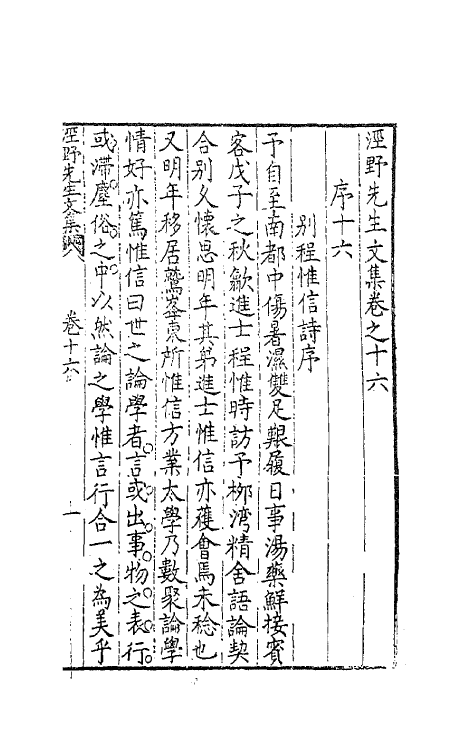 涇野先生文集卷之十六
序十六
别程惟信詩序
予自至南都中傷暑濕雙足艱履日事湯藥鮮接賓
客戊子之秋歙進士程惟時訪予柳灣精舍語論契
合别久懷思明年其弟進士惟信亦獲會焉未稔也
又明年移居鷲峯東所惟信方業太學乃數聚論學
情好亦篤惟信曰世之論學者言或出事物之表行
或滯塵俗之中以然論之學惟言行合一之為美乎
涇野先生文集 卷十六 一